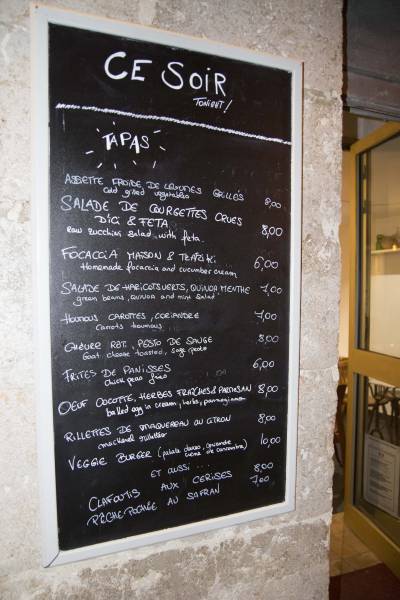 CE SOIR
TONIGHT!
TAPAS
ASSIETTE FROIDE DE LEGUMES GRILLÉS 8,00
cold grilled vegetables
SALADE DE COURGETTES CRUES
& FETA 8,00
raw zucchini salad with feta.
FOCACCIA MAISON & TZATZIKI 6,00
Homemade focaccia and cucumber cream
SALADE DE HARICOTS VERTS, QUINOA MENTHE 7,00
green beans, quinoa and mint salad
HOUMOUS CAROTTES, CORIANDRE 7,00
carrots houmous
CHÈVRE RÔTI, PESTO DE SAUGE 8,00
Goat cheese toasted, sage pesto
FRITES DE PANISSES 6,00
chick peas fries
OEUF COCOTTE, HERBES FRAÎCHES & PARMESAN 8,00
boiled egg in cream, herbs, parmigiano
RILLETTES DE MAQUEREAU AU CITRON 8,00
mackerel rillettes
VEGGIE BURGER (patate douce, 10,00
crème de concombre)
ET AUSSI ...
CLAFOUTIS AUX CERISES 8,00
PÊCHE POCHÉE AU SAFRAN 7,00